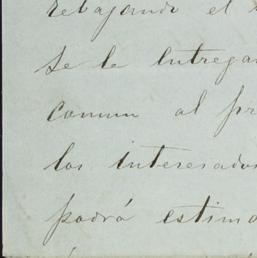 rebajando el
se le entrega
comun al pr
los interesados
podrá estima